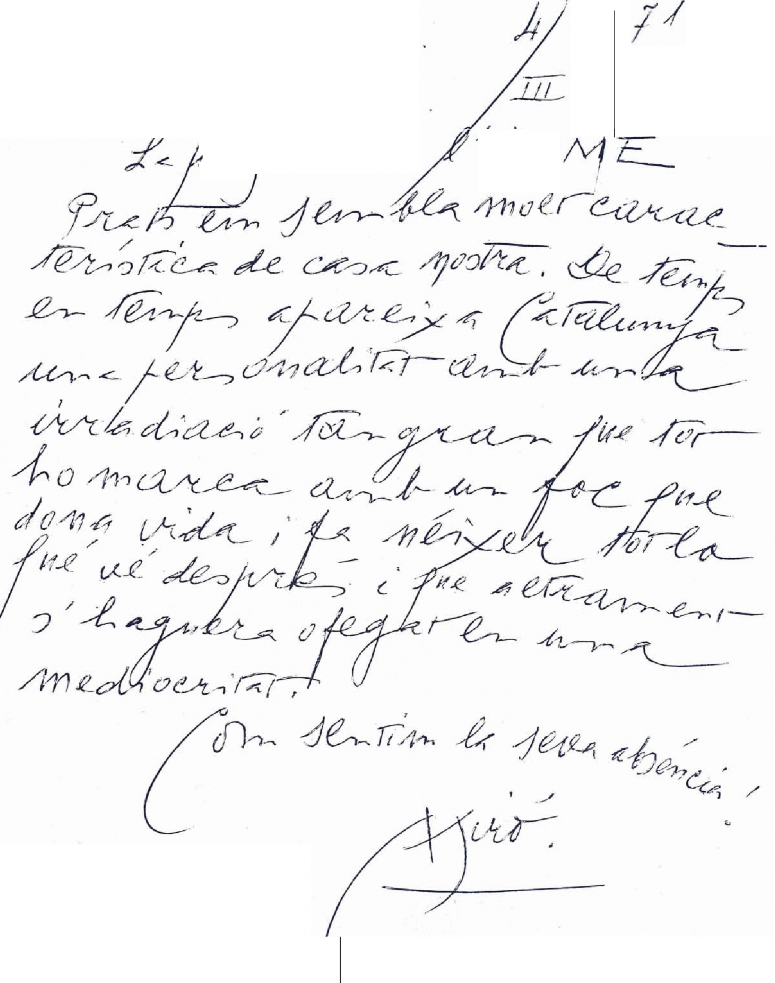 4 71
III
ME
Prats em sembla molt carac
terística de casa nostra. De temps
en temps apareix a Catalunya
una personalitat amb una
irradiació tan gran que tot
ho marca amb un foc que
dona vida i fa néixer tot lo
qué vé després i que altrament
s'haguera ofegat en una
mediocritat.
Com sentim la seva absència!
Miró.